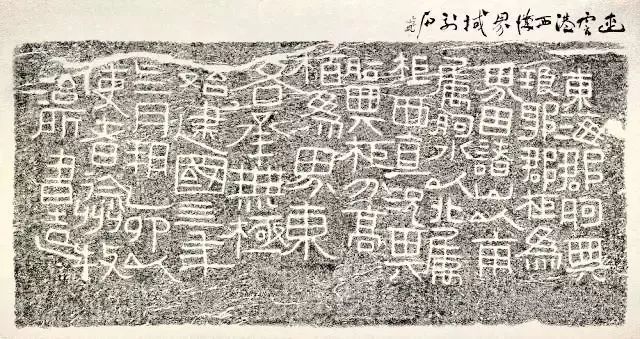 連雲港西漢界域刻石
東海郡朐與
琅邪郡柜爲
界因諸山以南
屬朐水以北屬
柜西直況其
朐與柜分高
桓爲界東
各承無極
始建國四年
三月朔乙卯以
使者徐州牧
治所書造